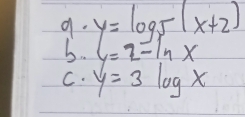 a. y = log5 (x+2)
b. y = 2 - ln x
c. y = 3 log x